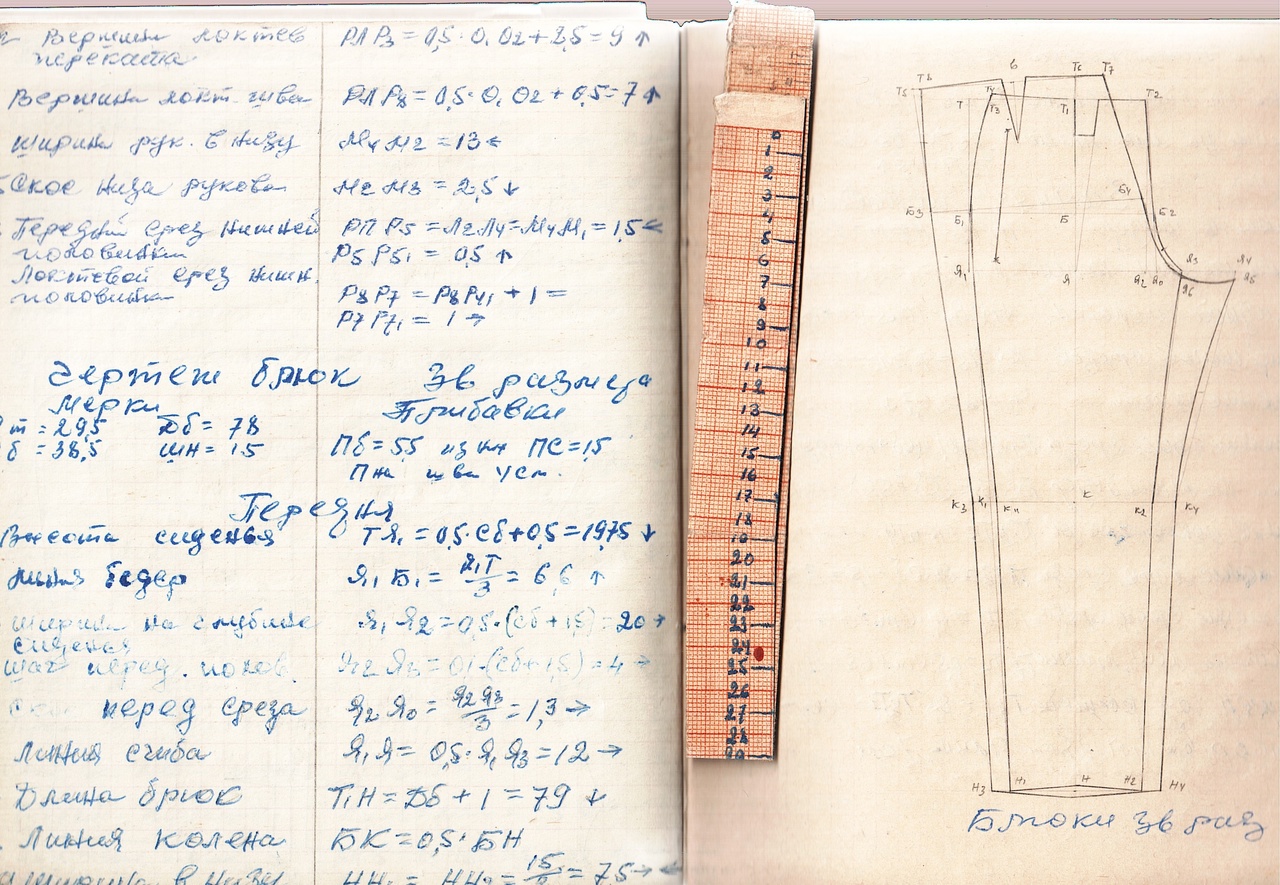 Вершина локтев РЛР₃ = 0,5·О₁О₂ + 2,5 = 9 ↑
переката
Вершина локт. шва РЛР₈ = 0,5·О₁О₂ + 0,5 = 7 ↑
Ширина рук. в низу М₄М₂ = 13 ←
Скос низа рукова М₂М₃ = 2,5 ↓
Передний срез нижней РПР₅ = Л₂Л₄ = М₄М₁ = 1,5 ←
половинки Р₅Р₅₁ = 0,5 ↑
Локтевой срез нижн.
половинки Р₈Р₇ = Р₈Р₄₁ + 1 =
Р₇Р₇₁ = 1 →
Чертеж брюк 38 размера
Мерки Прибавки
т = 29,5 Дб = 78
б = 38,5 шн = 15 Пб = 5,5 ПС = 1,5
Передняя
Высота сиденья ТЯ₁ = 0,5·Сб + 0,5 = 19,75 ↓
линия бедер Я₁Б₁ = Я₁Т/3 = 6,6 ↑
ширина на глубине Я₁Я₂ = 0,5·(Сб + 1,5) = 20 →
сиденья
шаг перед. полов. Я₂Я₃ = 0,1·(Сб + 1,5) = 4 →
перед среза Я₂Я₀ = Я₂Я₃/3 = 1,3 →
Линия сгиба Я₁Я = 0,5·Я₁Я₃ = 12 →
Длина брюк Т₁Н = Дб + 1 = 79 ↓
Линия колена БК = 0,5·БН
в низу НН₁ = НН₂ = 15/2 = 7,5 → ←
0
1
2
3
4
5
6
7
8
9
10
11
12
13
14
15
16
17
18
19
20
21
22
23
24
25
26
27
28
29
Т₆ Т₇
Т₅ Т₈ Т₄
Т Т₃ Т₁ Т₂
Б₄
Б₃ Б₁ Б Б₂
Я₃ Я₄
Я₁ Я Я₂ Я₀ Я₆ Я₅
К₃ К₁ К₁₁ К К₂ К₄
Н₃ Н₁ Н Н₂ Н₄
Брюки 38 раз